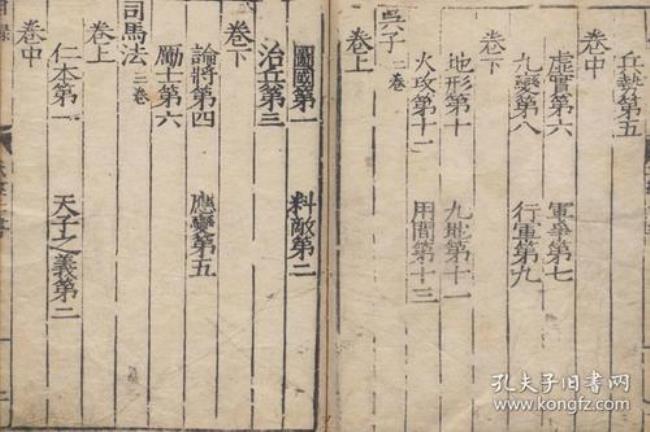 兵勢第五
卷中
虛實第六 軍爭第七
九變第八 行軍第九
卷下
地形第十 九地第十一
火攻第十二 用間第十三
吳子二卷
卷上
圖國第一 料敵第二
治兵第三
卷下
論將第四 應變第五
勵士第六
司馬法三卷
卷上
仁本第一 天子之義第二
卷中
孔夫子旧书网
www.kongfz.com